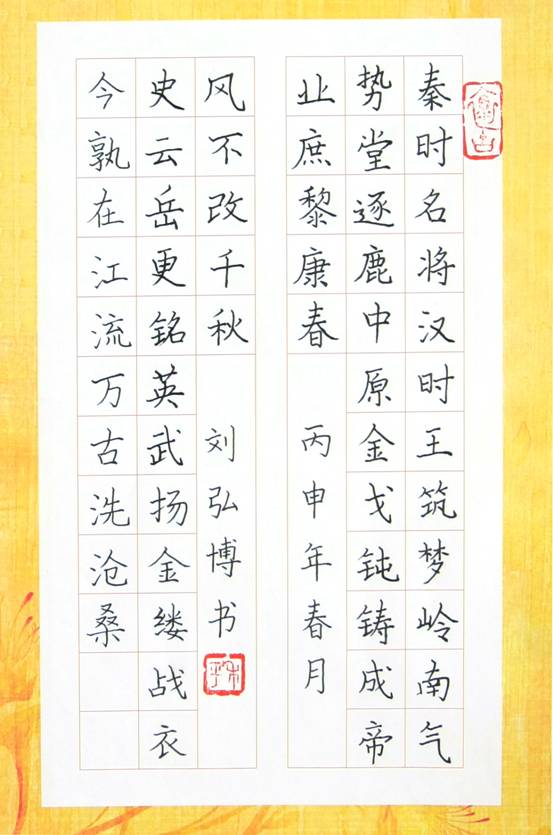 秦时名将汉时王筑梦岭南气
势堂逐鹿中原金戈钝铸成帝
业庶黎康春
丙申年春月
今孰在江流万古洗沧桑
史云岳更铭英武扬金缕战衣
风不改千秋
刘弘博书